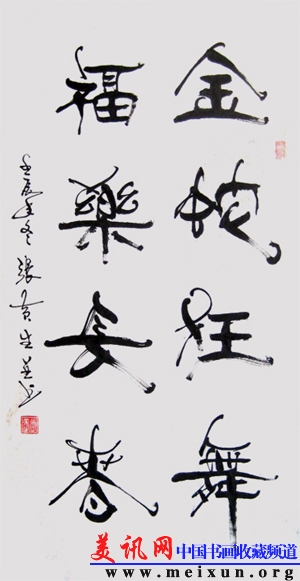 金蛇狂舞
福樂长春
美讯网
中国书画收藏频道
www.meixun.org